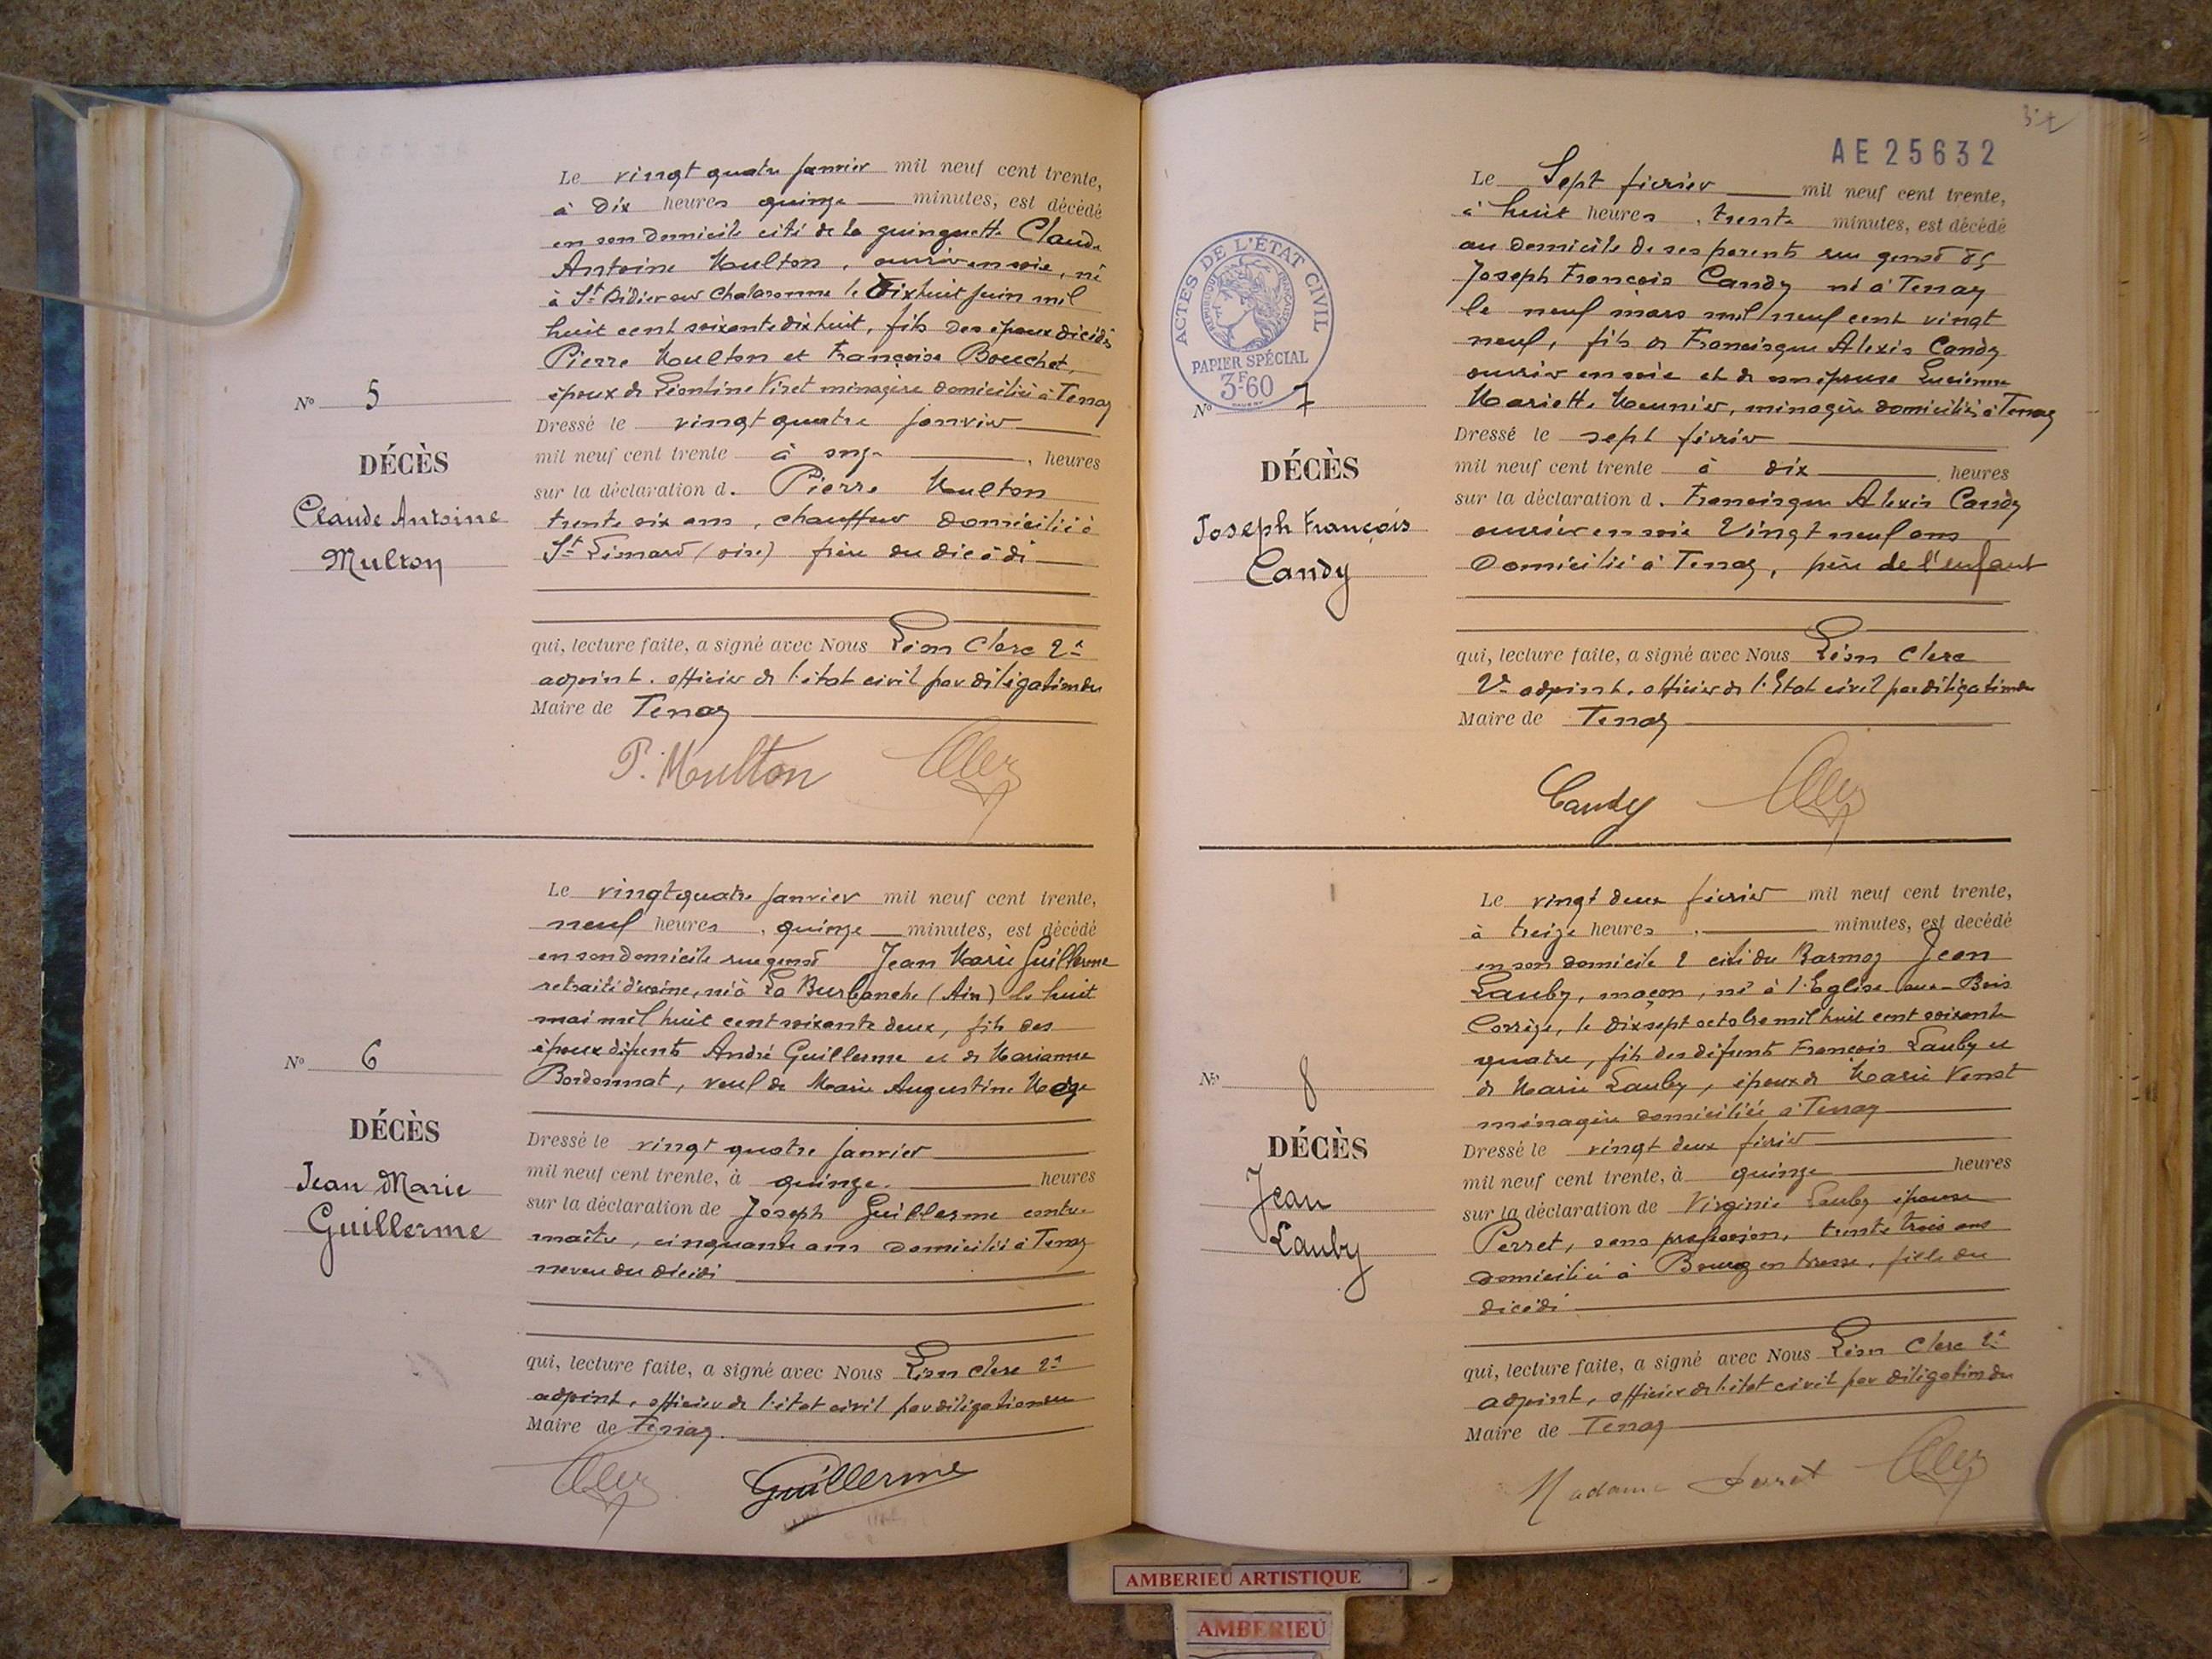 Le vingt quatre janvier mil neuf cent trente,
à Dix heures quinze minutes, est décédé
en son domicile cité de la guinguette Claude
Antoine Multon, ouvrier en soie, né
à St Didier sur Chalaronne le Dix huit juin mil
huit cent soixante dix huit, fils des époux décédés
Pierre Multon et Françoise Bouchet,
époux de Léontine Viret ménagère domiciliée à Tenay
Dressé le vingt quatre janvier
mil neuf cent trente à onze , heures
sur la déclaration d. Pierre Multon
trente six ans, chauffeur domicilié à
St Limard (oise) frère du décédé
qui, lecture faite, a signé avec Nous Léon Clerc 2e
adjoint. officier de l'état civil par délégation du
Maire de Tenay
P. Moulton
No 5
DÉCÈS
Claude Antoine
Multon
Le vingt quatre janvier mil neuf cent trente,
neuf heures , quinze minutes, est décédé
en son domicile rue genod Jean Marie Guillerme
retraité d'usine, né à La Burbanche (Ain) le huit
mai mil huit cent soixante deux, fils des
époux défunts André Guillerme et de Marianne
Bordonnat, veuf de Marie Augustine
Dressé le vingt quatre janvier
mil neuf cent trente, à quinze. heures
sur la déclaration de Joseph Guillerme contre-
maître, cinquante ans domicilié à Tenay
neveu du décédé
qui, lecture faite, a signé avec Nous Léon Clerc 2e
adjoint, officier de l'état civil par délégation du
Maire de Tenay.
Guillerme
No 6
DÉCÈS
Jean Marie
Guillerme
AE 25632
Le Sept février mil neuf cent trente,
à huit heures , trente minutes, est décédé
au domicile de ses parents rue genod 85
Joseph François Candy né à Tenay
le neuf mars mil neuf cent vingt
neuf, fils de Francisque Alexis Candy
ouvrier en soie et de son épouse Lucienne
Mariette Meunier, ménagère domiciliés à Tenay
Dressé le sept février
mil neuf cent trente à dix , heures
sur la déclaration d. Francisque Alexis Candy
ouvrier en soie Vingt neuf ans
Domicilié à Tenay, père de l'enfant
qui, lecture faite, a signé avec Nous Léon Clerc
2e adjoint, officier de l'Etat civil par délégation du
Maire de Tenay
Candy
ACTES DE L'ÉTAT CIVIL
RÉPUBLIQUE FRANÇAISE
PAPIER SPÉCIAL
3F60
No 7
DÉCÈS
Joseph François
Candy
Le vingt deux février mil neuf cent trente,
à treize heures , minutes, est décédé
en son domicile 2 cité du Barmay Jean
Lauby, maçon, né à l'Eglise aux Bois
Corrèze, le dix sept octobre mil huit cent soixante
quatre, fils des défunts François Lauby et
de Marie Lauby, époux de Marie Venot
ménagère domiciliée à Tenay
Dressé le vingt deux février
mil neuf cent trente, à quinze heures
sur la déclaration de Virginie Lauby épouse
Perret, sans profession, trente trois ans
domiciliée à Bourg en bresse, fille du
décédé
qui, lecture faite, a signé avec Nous Léon Clerc 2e
adjoint, officier de l'état civil par délégation du
Maire de Tenay
Madame Perret
No 8
DÉCÈS
Jean
Lauby
AMBERIEU ARTISTIQUE
AMBERIEU